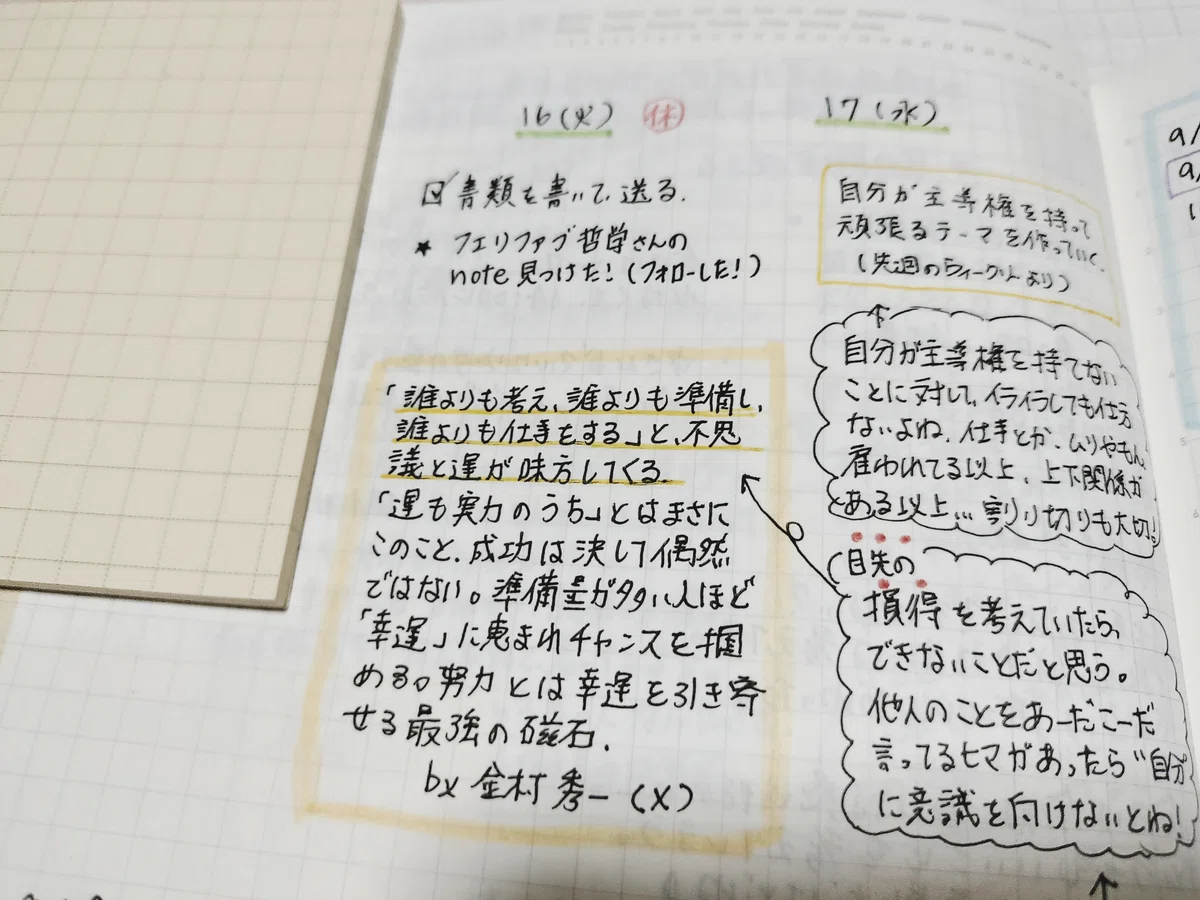 16(火) 休
☑ 書類を書いて送る.
★ フェリファブ哲学さんの
note見つけた!(フォローした!)
「誰よりも考え、誰よりも準備し、
誰よりも仕事をする」と、不思
議と運が味方してくる.
「運も実力のうち」とはまさに
このこと.成功は決して偶然
ではない。準備量が多い人ほど
「幸運」に恵まれチャンスを掴
める。努力とは幸運を引き寄
せる最強の磁石.
by 金村秀一(X)
17(水)
自分が主導権を持って
頑張るテーマを作っていく.
(先週のウィークリーより)
自分が主導権を持てない
ことに対して、イライラしても仕方
ないよね.仕事とか、ムリやもん
雇われてる以上、上下関係が
ある以上…割り切りも大切!
目先の
損得を考えていたら、
できないことだと思う。
他人のことをあーだこーだ
言ってるヒマがあったら"自分
に意識を向けないとね!
9/
9/
1